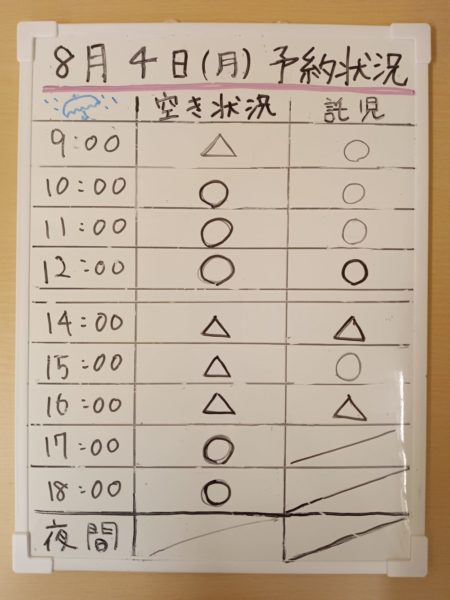 8月4日(月) 予約状況
空き状況 託児
9:00 △ ○
10:00 ○ ○
11:00 ○ ○
12:00 ○ ○
14:00 △ △
15:00 △ ○
16:00 △ △
17:00 ○
18:00 ○
夜間